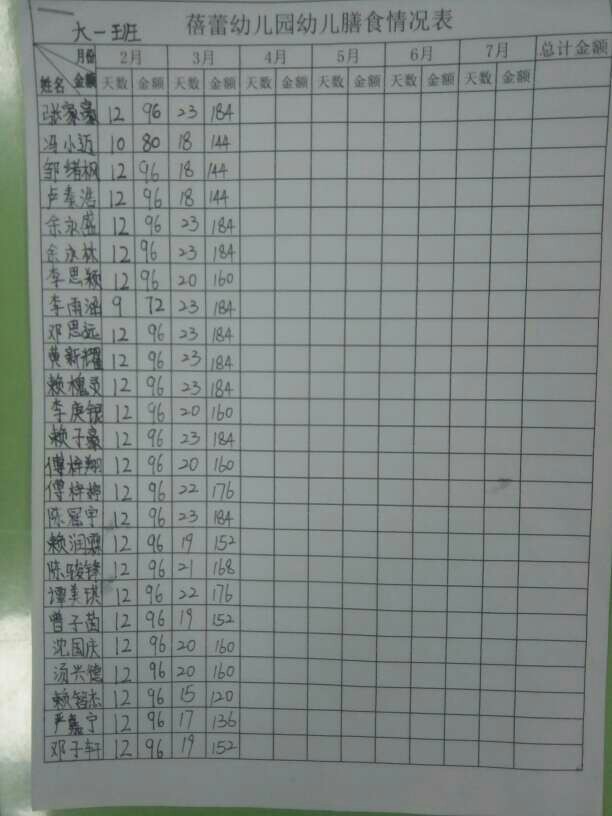 大一班 蓓蕾幼儿园幼儿膳食情况表
月份 2月 3月 4月 5月 6月 7月 总计金额
姓名 金额 天数 金额 天数 金额 天数 金额 天数 金额 天数 金额 天数 金额
张家豪 12 96 23 184
冯小近 10 80 18 144
邹绪枫 12 96 18 144
卢泰浩 12 96 18 144
余永盛 12 96 23 184
余永林 12 96 23 184
李思颖 12 96 20 160
李雨涵 9 72 23 184
邓思远 12 96 23 184
黄新耀 12 96 23 184
赖槐 12 96 23 184
李庚银 12 96 20 160
赖子豪 12 96 23 184
傅梓翔 12 96 20 160
傅梓婷 12 96 22 176
陈冠宇 12 96 23 184
赖润霖 12 96 19 152
陈骏锋 12 96 21 168
谭美琪 12 96 22 176
曾子茵 12 96 19 152
沈国庆 12 96 20 160
汤兴德 12 96 20 160
赖智杰 12 96 15 120
严嘉宁 12 96 17 136
邓子轩 12 96 19 152